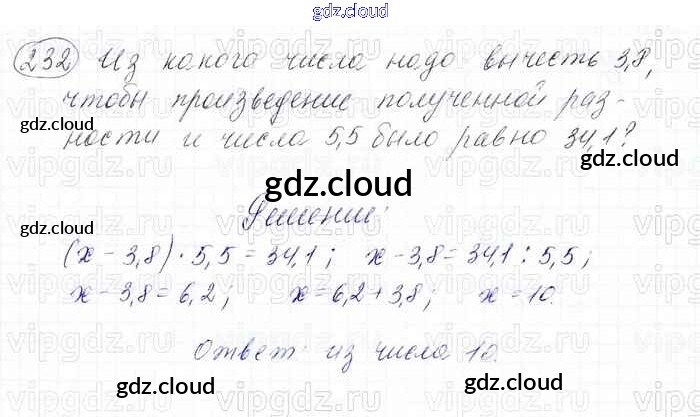 gdz.cloud
232 Из какого числа надо вычесть 3,8,
чтобы произведение полученной раз-
gdz.cloud
gdz.cloud
ности и числа 5,5 было равно 34,1?
gdz.cloud
gdz.cloud
gdz.cloud
Решение:
(x - 3,8) · 5,5 = 34,1; x - 3,8 = 34,1 : 5,5;
x - 3,8 = 6,2; x = 6,2 + 3,8; x = 10.
Ответ: из числа 10.
gdz.cloud
gdz.cloud